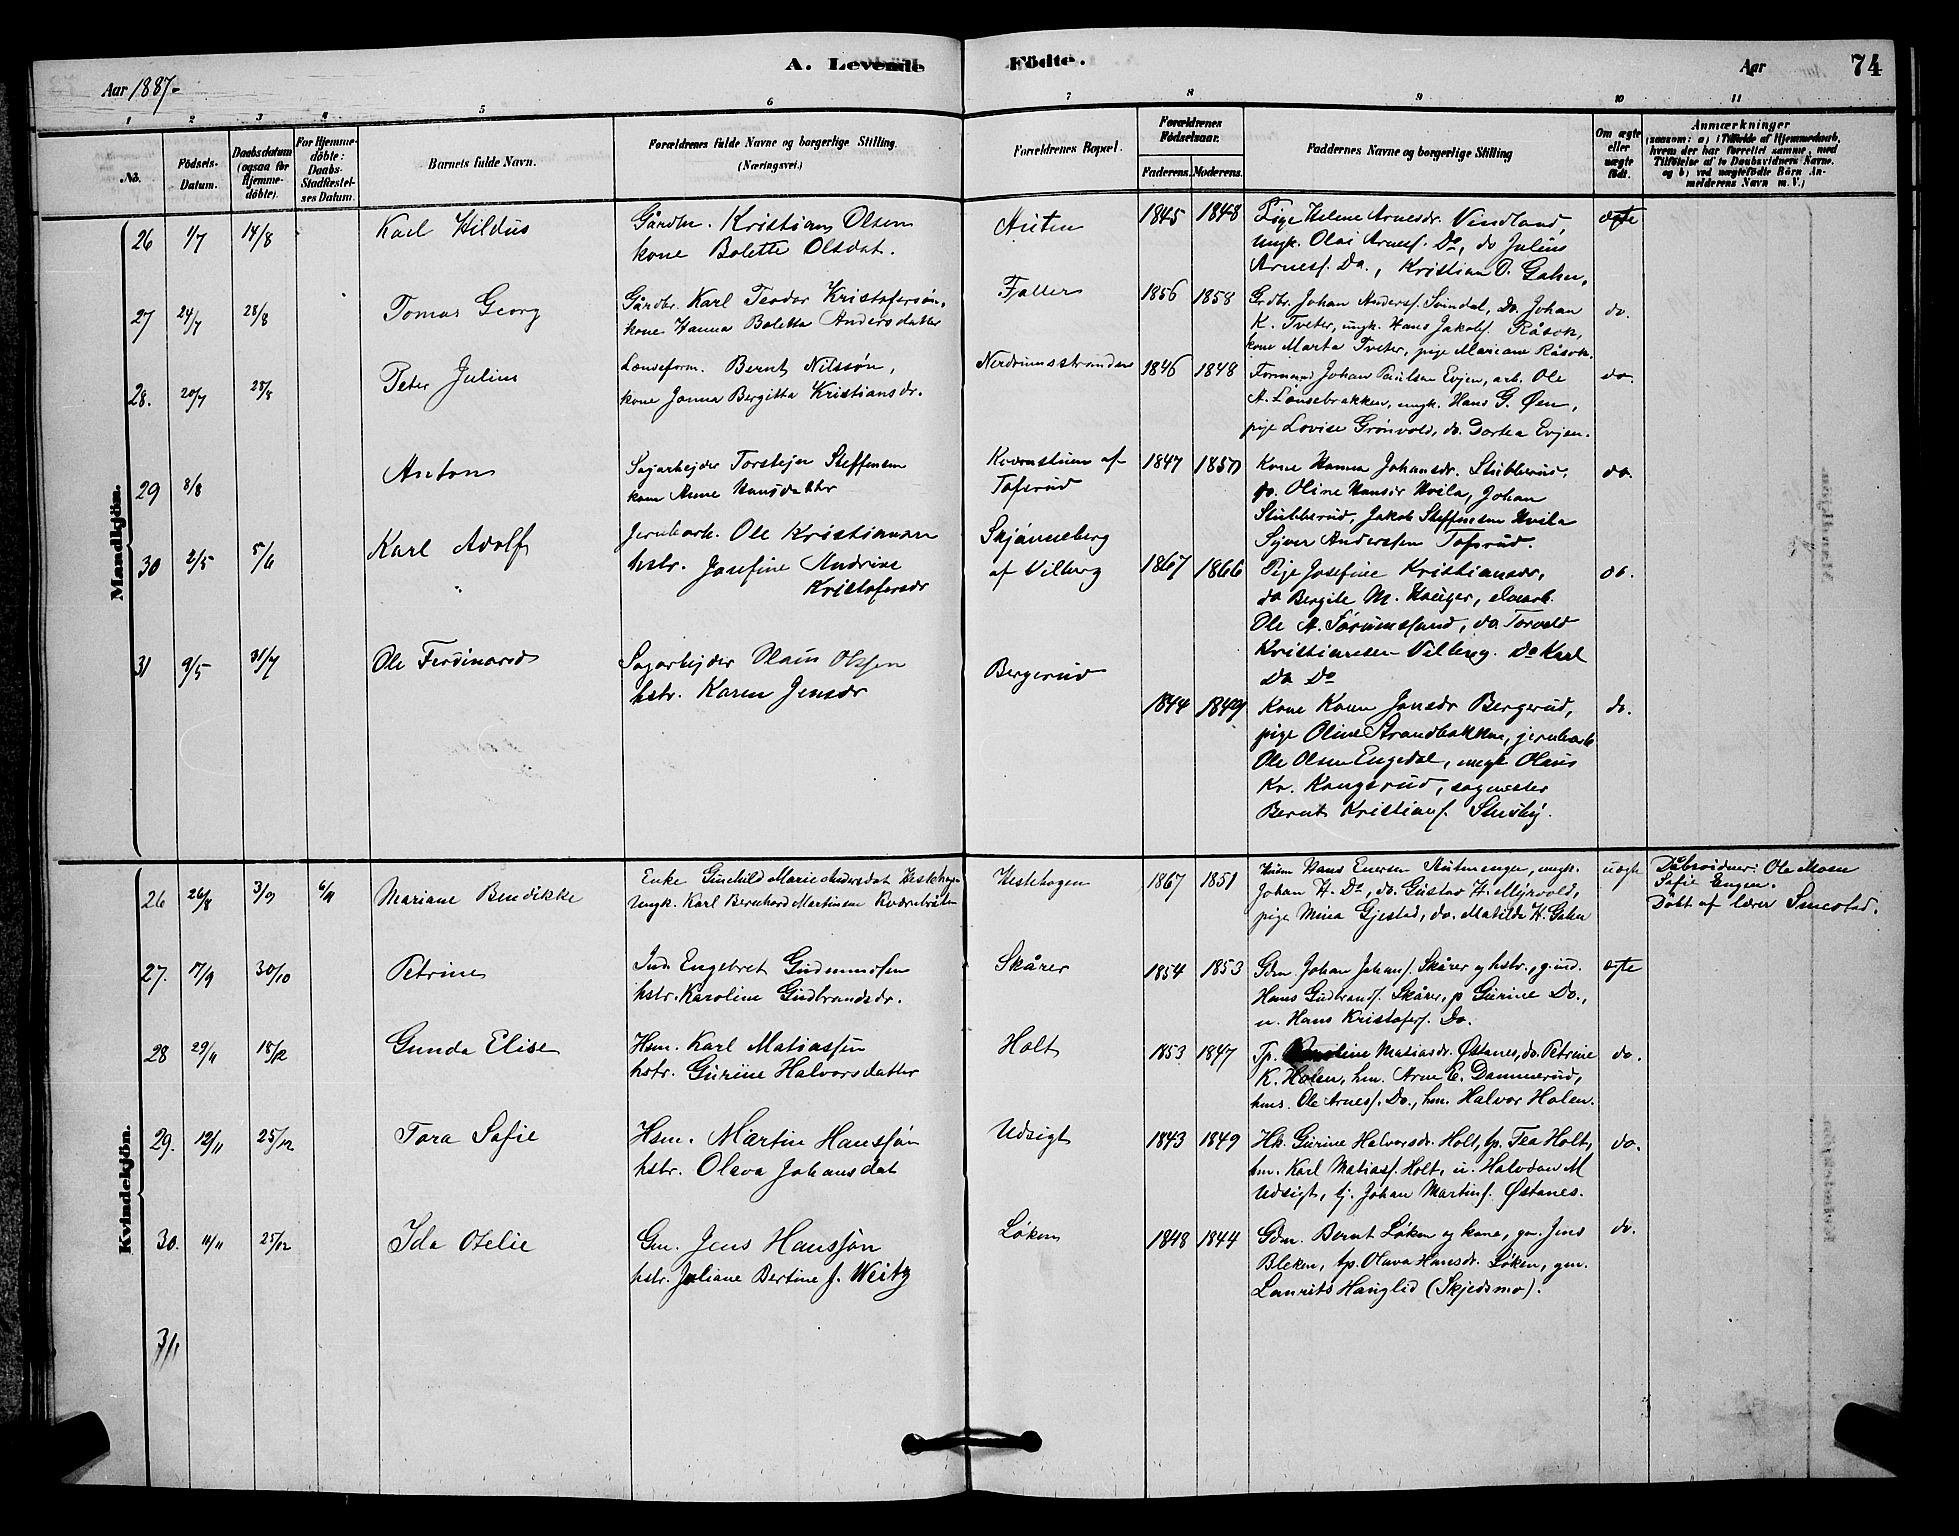 A. Levende Födte.
Aar 1887.
Aar 74
1 2 3 4 5 6 7 8 9 10 11
No.
Födsels-Datum.
Daabsdatum (ogsaa for Hjemme-döbte).
For Hjemme-döbte: Daabs-Stadfæstel-ses Datum.
Barnets fulde Navn.
Forældrenes fulde Navne og borgerlige Stilling. (Næringsvei.)
Forældrenes Bopæl.
Forældrenes Födselsaar.
Faderens. Moderens.
Faddernes Navne og borgerlige Stilling
Om ægte eller uægte födt.
Anmærkninger
(saasom: a) i Tilfælde af Hjemmedaab,
hvem der har forrettet samme, med
Tilföielse af to Daabsvidners Navne.
og b) ved uægtefödte Börn An-
melderens Navn m. V.)
Mandkjön.
26 1/7 14/8 Karl Hildus
Gårdbr. Kristian Olsen
kone Bolette Olsdat.
Auten 1845 1848
Pige Helene Arnesdr. Vindland,
ungk. Olai Arnesf. Do, do Julius
Arnesf. Do., Kristian O. Gahn,
ægte
27 24/7 28/8 Tomas Georg
Gårdbr. Karl Teodor Kristofersøn,
kone Hanna Boletta Andersdatter
Faller 1856 1858
Grdbr. Johan Andersf. Svindal, Do. Johan
K. Tveter, ungk. Hans Jakobf. Råsok,
kone Marta Tveter, pige Mariane Råsok.
do.
28. 20/7 28/8 Peter Julius
Lænseform. Bernt Nilssøn,
kone Janna Bergitta Kristiansdr.
Nerdrumsstranden 1846 1848
Formand Johan Paulsen Evjen, arb. Ole
A. Lønsebakken, ungk. Hans G. Øen,
pige Lovise Grønvold, do. Dortea Evjen.
do.
29 8/8 Anton
Sagarbejder Torstejn Steffensen
kone Anne Hansdatter
Kværnstuen af
Tofsrud
1847 1850
Kone Hanna Johansdr. Stubberud,
p. Oline Hansdr Hvila, Johan
Stubberud, Jakob Steffensen Hvila
Syver Anderssen Tofsrud.
do.
30 2/5 5/6 Karl Adolf
Jernbarb. Ole Kristiansen
hstr. Josefine Andrine
Kristofersdr
Skjønneberg
af Vilberg
1867 1866
Pige Josefine Kristiansdr,
do Bergite M. Hauger, elvearb.
Ole A. Sørumsand, do. Torvald
Kristiansen Vilberg. Do Karl
Do Do
do.
31 9/5 31/7 Ole Ferdinand
Sagarbejder Olaus Olsen
hstr. Karen Jensdr
Bergerud
1844 1849
Kone Karen Jonsdr Bergerud,
pige Oline Strandbakken, jernbarb
Ole Olsen Engedal, ungk Olaus
Kr. Kongsrud, sagmester
Bernt Kristianf. Stusby.
do.
Kvindekjön.
26 26/8 3/9 Mariane Bendikke
Enke Gunhild Marie Andersdat Hestehagen
Ungk. Karl Bernhard Martinsen Kværnbråten
Hestehagen 1867 1851
Husm Hans Enersen Autnengen, ungk.
Johan H. Do, do. Gustav H. Myrvold,
pige Mina Gjestad, do. Matilde H. Gahn
uægte
Dåbsvidner: Ole Moen
Sofie Engen.
Døbt af lærer Smestad.
27. 17/9 30/10 Petrine
Ind. Engebret Gudmundsen
hstr. Karoline Gudbrandsdr.
Skårer 1854 1853
Gdm. Johan Johansf. Skårer og hstr., g. ind.
Hans Gudbrandf. Skårer, p Gurine Do.,
u. Hans Kristofersf. Do.
ægte
28 29/11 18/12 Gunda Elise
Hsm. Karl Matiassøn
hstr. Gurine Halvorsdatter
Holt 1853 1847
Tp. Karoline Matiasdr. Østanes, do. Petrine
K. Holen, hm. Arne E. Dammerud,
hms. Ole Arnesf. Do., hm. Halvor Holen.
do.
29. 12/11 25/12 Tora Sofie
Hsm. Martin Hanssøn
hstr. Olava Johansdat
Udsigt 1843 1849
Hk. Gurine Halvorsdr. Holt, tp. Tea Holt,
hm. Karl Matiasf. Holt, u. Halvdan M
Udsigt, tj. Johan Martinf. Østanes.
do.
30. 11/11 25/12 Ida Otelie
Gm. Jens Hanssøn
hstr. Juliane Bertine f. Weity
Løken 1848 1844
Gdm. Bernt Løken og kone, gm. Jens
Bleken, tp. Olava Hansdr. Løken, gm.
Laurits Hauglid (Skjedsmo).
do.
31